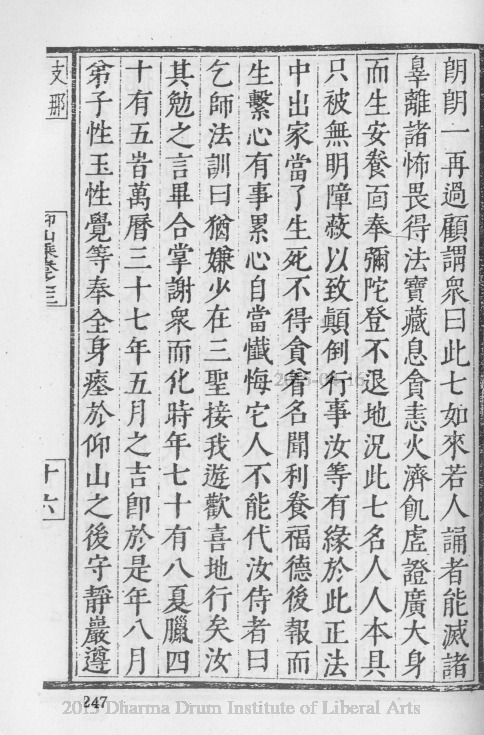 朗朗一再過顧謂衆曰此七如來若人誦者能滅諸
辠離諸怖畏得法寶藏息貪恚火濟飢虛證廣大身
而生安養靣奉彌陀登不退地況此七名人人本具
只被無明障蔽以致顛倒行事汝等有緣於此正法
中出家當了生死不得貪着名聞利養福德後報而
生繫心有事累心自當懺悔它人不能代汝侍者曰
乞師法訓曰猶嫌少在三聖接我遊歡喜地行矣汝
其勉之言畢合掌謝衆而化時年七十有八夏臘四
十有五旹萬曆三十七年五月之吉卽於是年八月
第子性玉性覺等奉全身瘞於仰山之後守靜巖遵
支那
仰山乘卷三
十六
247
2013 Dharma Drum Institute of Liberal Arts